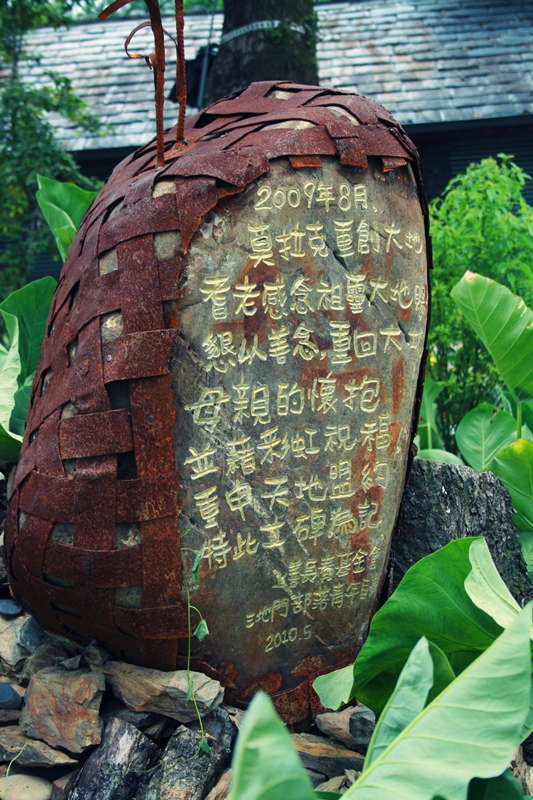 2009年8月,
莫拉克重創大地
耆老感念祖靈大地賜
懇以善念,重回大
母親的懷抱
並藉彩虹祝福,
重申天地盟約
特此立碑為記
基金會
三地門部落青年
2010.5